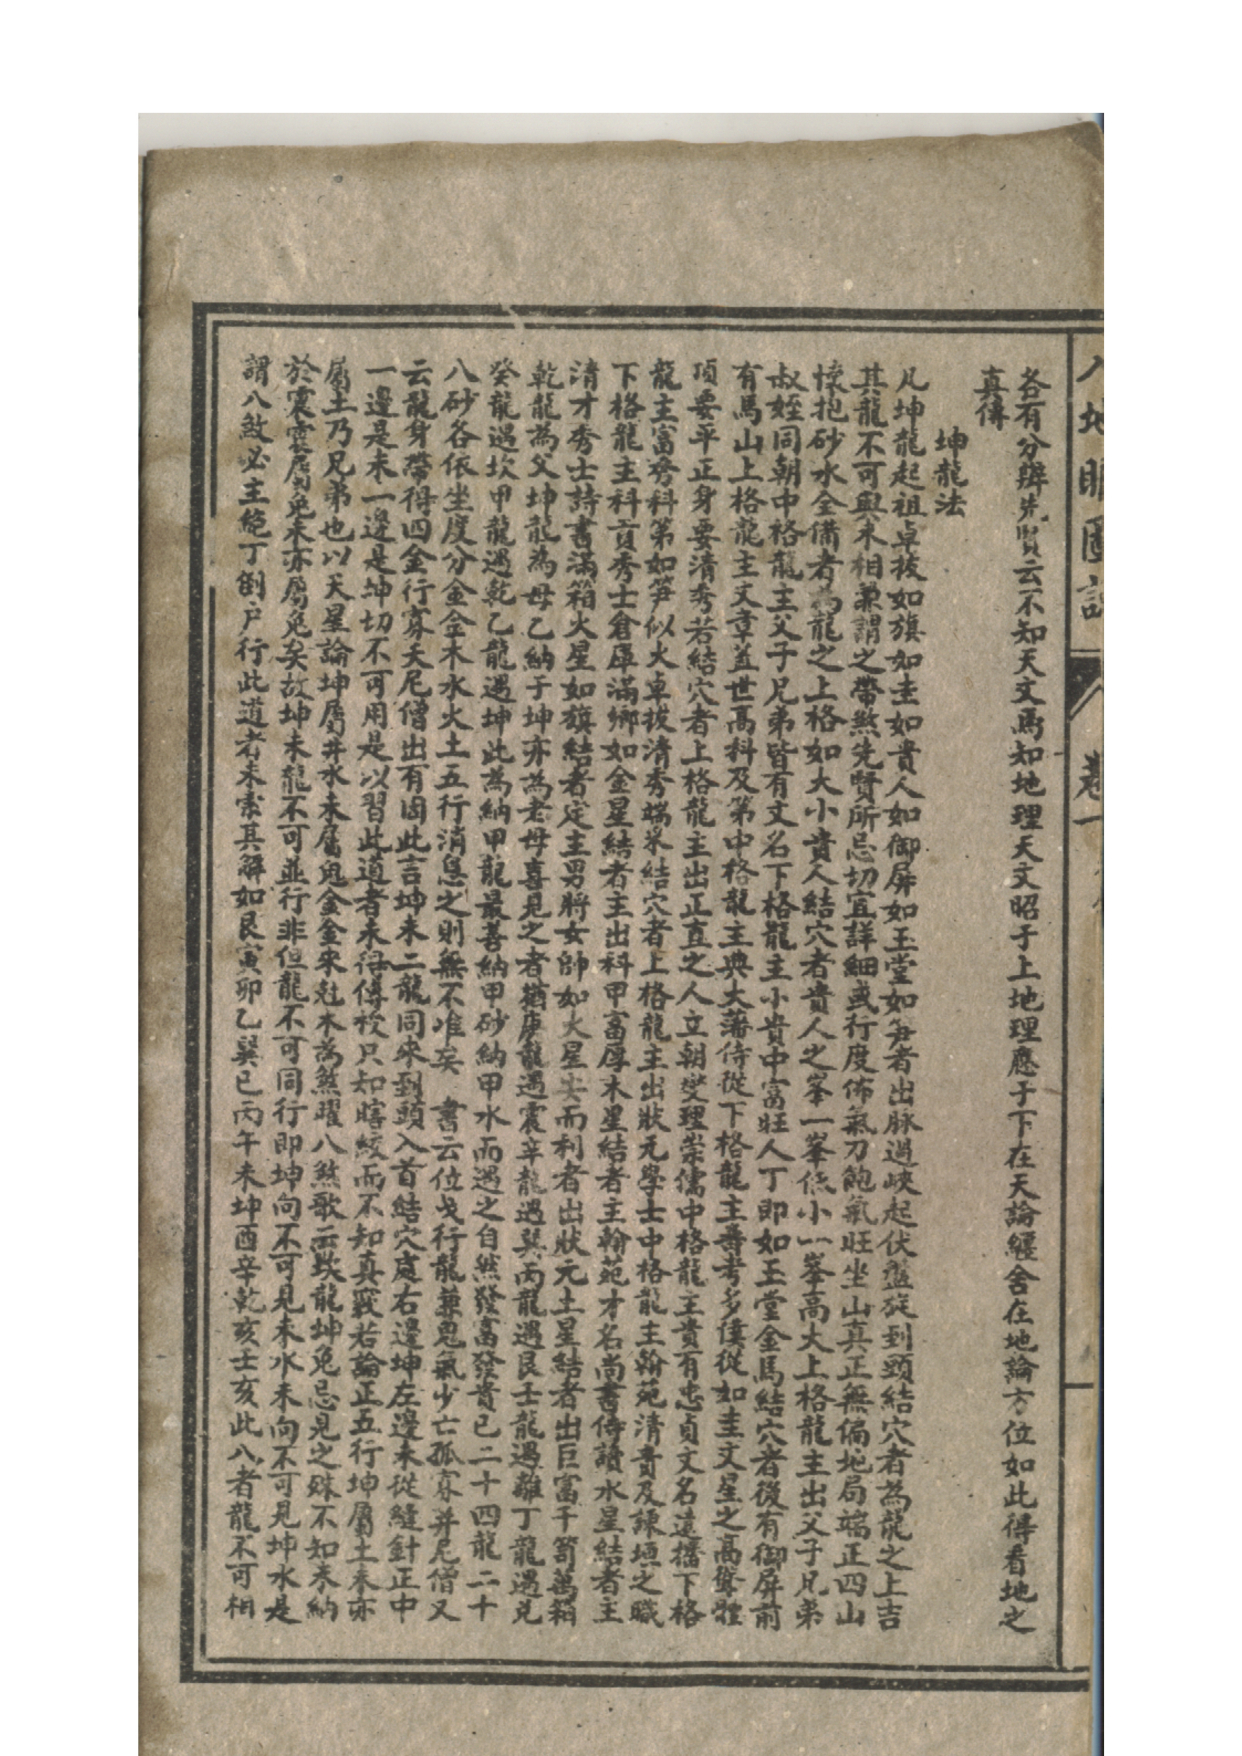 入地眼圖說 卷一
各有分辨先賢云不知天文焉知地理天文昭于上地理應于下在天論纏舍在地論方位如此得看地之
真傳
坤龍法
凡坤龍起祖卓拔如旗如圭如貴人如御屏如玉堂如笋者出脉過峽起伏盤旋到頭結穴者為龍之上吉
其龍不可與未相兼謂之帶煞先賢所忌切宜詳細或行度佈氣刀飽氣旺坐山真正無偏地局端正四山
懷抱砂水全備者為龍之上格如大小貴人結穴者貴人之峯一峯低小一峯高大上格龍主出父子兄弟
叔姪同朝中格龍主父子兄弟皆有文名下格龍主小貴中富旺人丁即如玉堂金馬結穴者後有御屏前
有馬山上格龍主文章蓋世高科及第中格龍主典大藩侍從下格龍主壽考多僕從如圭文星之高聳體
頂要平正身要清秀若結穴者上格龍主出正直之人立朝燮理崇儒中格龍主貴有忠貞文名遠播下格
龍主富秀科第如笋似火卓拔清秀端朵結穴者上格龍主出狀元學士中格龍主翰苑清貴及諫垣之職
下格龍主科貢秀士倉庫滿鄉如金星結者主出科甲富厚木星結者主翰苑才名尚書侍讀水星結者主
清才秀士詩書滿箱火星如旗結者定主男將女帥如火星尖而利者出狀元土星結者出巨富千笥萬箱
乾龍為父坤龍為母乙納于坤亦為老母喜見之者猶庚龍遇震辛龍遇巽丙龍遇艮壬龍遇離丁龍遇兑
癸龍遇坎甲龍遇乾乙龍遇坤此為納甲龍最善納甲砂納甲水而遇之自然發富發貴已二十四龍二十
八砂各依坐度分金金木水火土五行消息之則無不准矣 書云位戈行龍兼鬼氣少亡孤寡并尼僧又
云龍身帶得四金行寡夭尼僧出有因此言坤未二龍同來到頭入首結穴處右邊坤左邊未從縫針正中
一邊是未一邊是坤切不可用是以習此道者未得傳授只知瞎絞而不知真竅若論正五行坤屬土未亦
屬土乃兄弟也以天星論坤屬井水未屬鬼金金來尅木為煞曜八煞歌云坎龍坤兔忌見之殊不知未納
於震震屬兔未亦屬兔矣故坤未龍不可並行非但龍不可同行即坤向不可見未水未向不可見坤水是
謂八煞必主絕丁倒户行此道者未索其解如艮寅卯乙巽巳丙午未坤酉辛乾亥壬亥此八者龍不可相